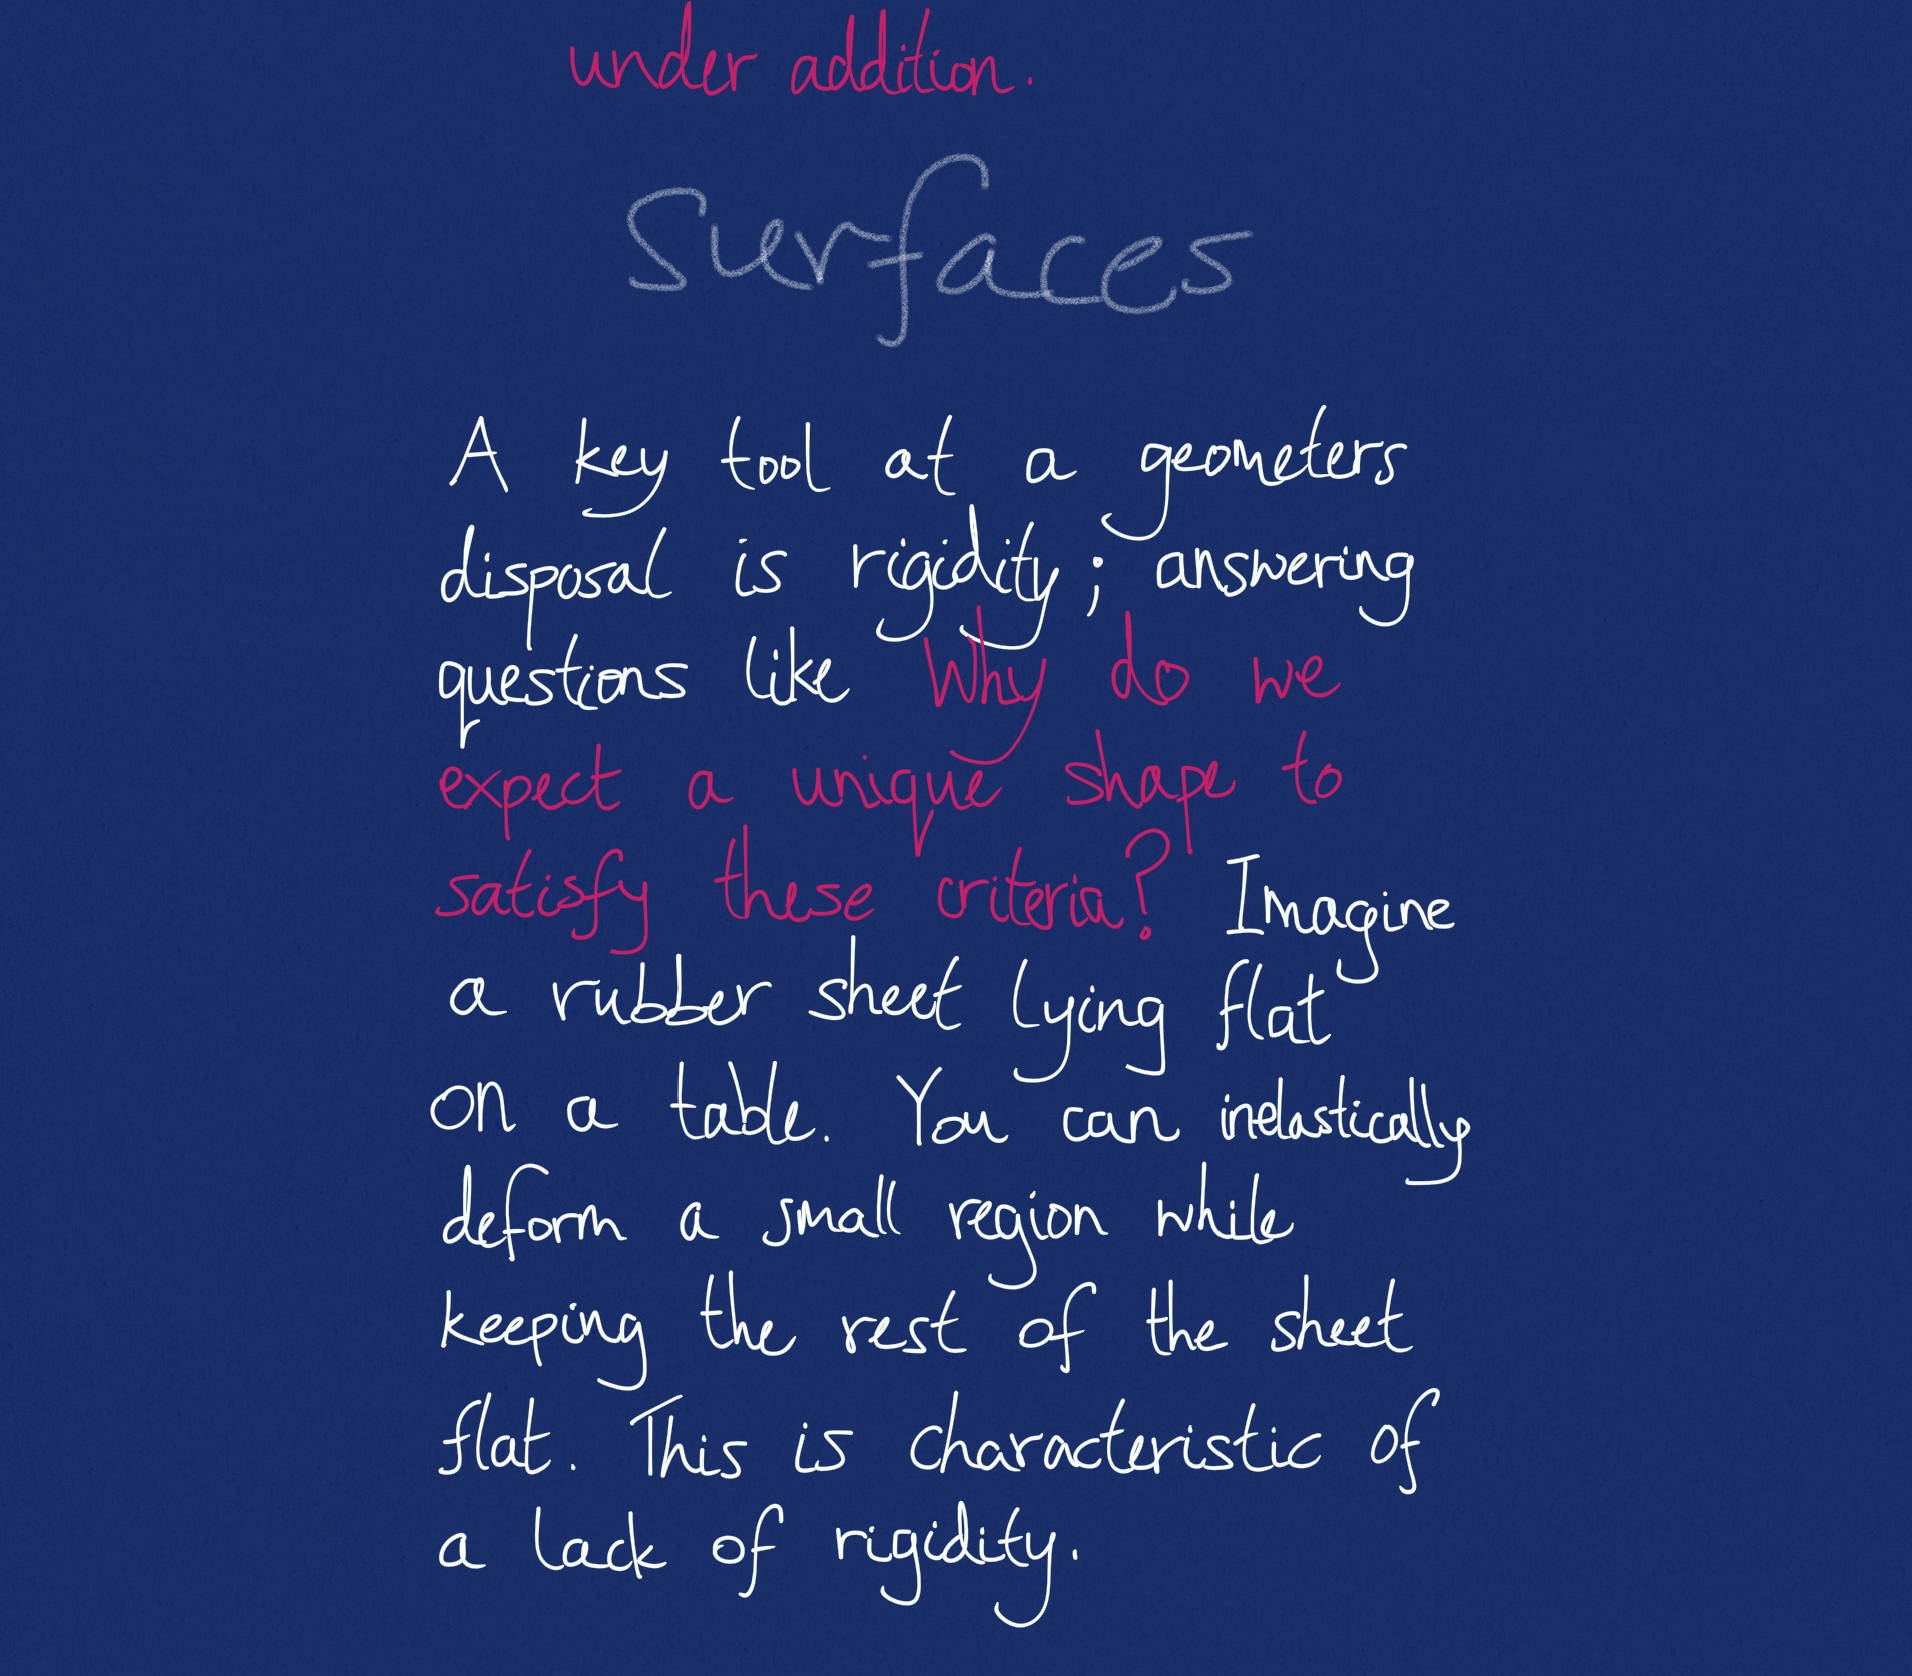 under addition.
Surfaces
A key tool at a geometers
disposal is rigidity; answering
questions like Why do we
expect a unique shape to
satisfy these criteria? Imagine
a rubber sheet lying flat
on a table. You can inelastically
deform a small region while
keeping the rest of the sheet
flat. This is characteristic of
a lack of rigidity.